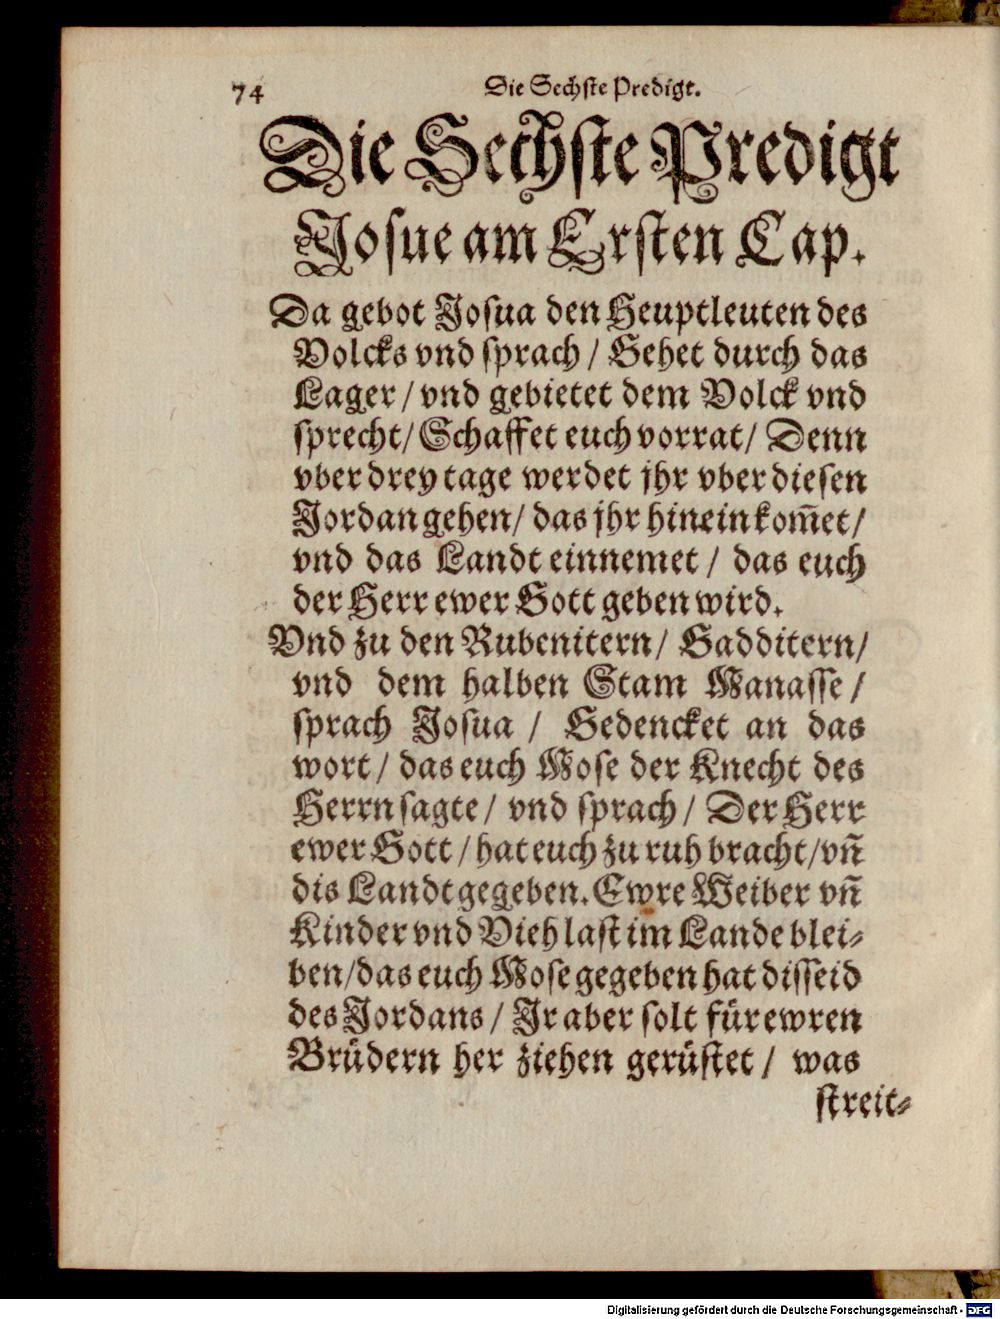 74
Die Sechste Predigt.
Die Sechste Predigt
Josue am Ersten Cap.
Da gebot Josua den Heuptleuten des
Volcks vnd sprach / Gehet durch das
Lager / vnd gebietet dem Volck vnd
sprecht / Schaffet euch vorrat / Denn
vber drey tage werdet jhr vber diesen
Jordan gehen / das jhr hinein kom̃et /
vnd das Landt einnemet / das euch
der Herr ewer Gott geben wird.
Vnd zu den Rubenitern / Gadditern /
vnd dem halben Stam Manasse /
sprach Josua / Gedencket an das
wort / das euch Mose der Knecht des
Herrn sagte / vnd sprach / Der Herr
ewer Gott / hat euch zu ruh bracht / vñ
dis Landt gegeben. Ewre Weiber vñ
Kinder vnd Vieh last im Lande blei-
ben / das euch Mose gegeben hat disseid
des Jordans / Jr aber solt für ewren
Brüdern her ziehen gerüstet / was
streit-
Digitalisierung gefördert durch die Deutsche Forschungsgemeinschaft - DFG